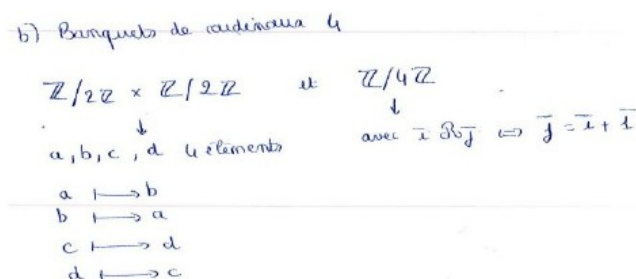 b) Banquets de cardinaux 4
ℤ/2ℤ × ℤ/2ℤ et ℤ/4ℤ
↓ ↓
a, b, c, d 4 éléments avec ī R j̄ ⟺ j̄ = ī + 1̄
a ⟼ b
b ⟼ a
c ⟼ d
d ⟼ c